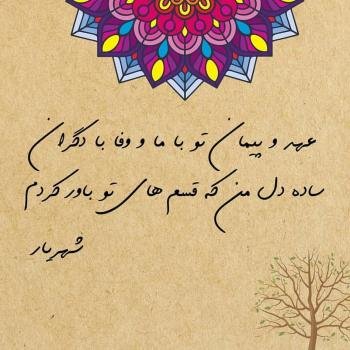 عهد و پیمان تو با ما و وفا با دگران
ساده دل من که قسم های تو باور کردم
شهریار